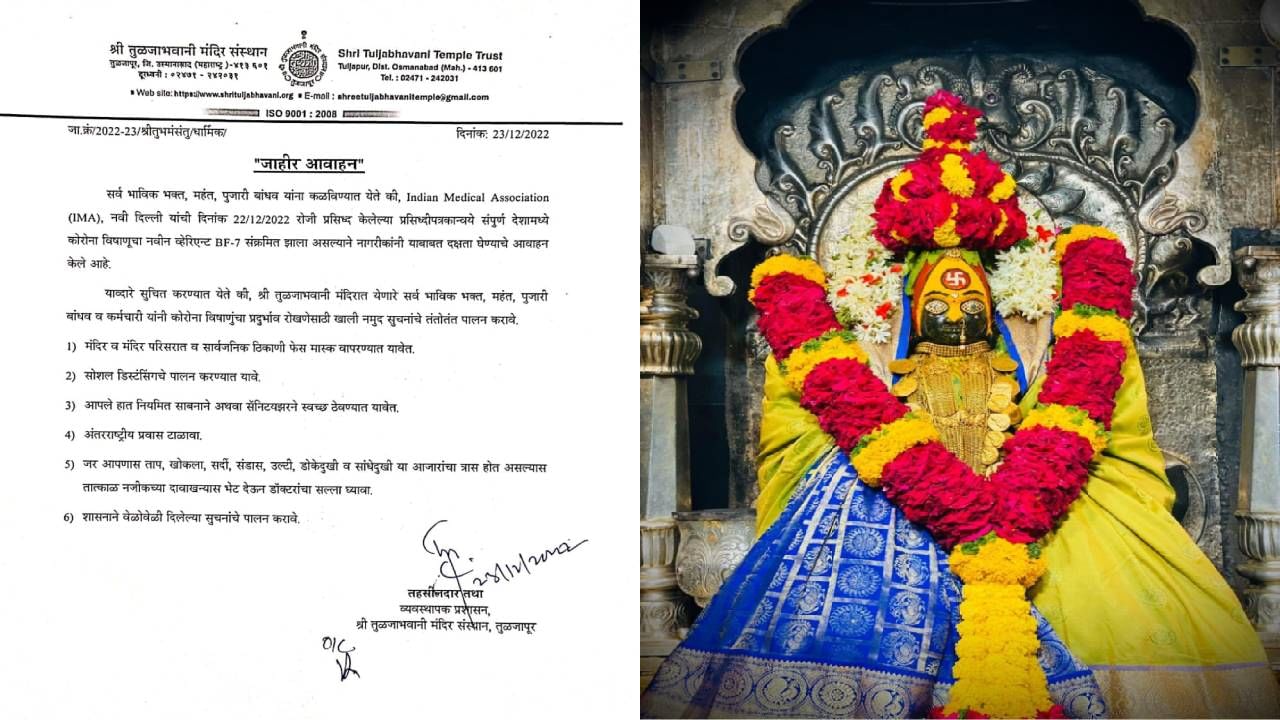 श्री तुळजाभवानी मंदिर संस्थान
तुळजापूर, जि. उस्मानाबाद (महाराष्ट्र)-४१३ ६०१
दूरध्वनी : ०२४७१ - २४२०३१
Shri Tuljabhavani Temple Trust
Tuljapur, Dist. Osmanabad (Mah.) - 413 601
Tel. : 02471 - 242031
Web site: https://www.shrituljabhavani.org ■ E-mail : shreetuljabhavanitemple@gmail.com
ISO 9001 : 2008
जा.क्रं/2022-23/श्रीतुभमंसंतु/धार्मिक/
दिनांक: 23/12/2022
"जाहीर आवाहन"
सर्व भाविक भक्त, महंत, पुजारी बांधव यांना कळविण्यात येते की, Indian Medical Association
(IMA), नवी दिल्ली यांची दिनांक 22/12/2022 रोजी प्रसिध्द केलेल्या प्रसिध्दीपत्रकान्वये संपुर्ण देशामध्ये
कोरोना विषाणूचा नवीन व्हेरिएन्ट BF-7 संक्रमित झाला असल्याने नागरीकांनी याबाबत दक्षता घेण्याचे आवाहन
केले आहे.
याव्दारे सुचित करण्यात येते की, श्री तुळजाभवानी मंदिरात येणारे सर्व भाविक भक्त, महंत, पुजारी
बांधव व कर्मचारी यांनी कोरोना विषाणुंचा प्रदुर्भाव रोखणेसाठी खाली नमुद सुचनांचे तंतोतंत पालन करावे.
1) मंदिर व मंदिर परिसरात व सार्वजनिक ठिकाणी फेस मास्क वापरण्यात यावेत.
2) सोशल डिस्टंसिंगचे पालन करण्यात यावे.
3) आपले हात नियमित साबनाने अथवा सॅनिटयझरने स्वच्छ ठेवण्यात यावेत.
4) अंतरराष्ट्रीय प्रवास टाळावा.
5) जर आपणास ताप, खोकला, सर्दी, संडास, उल्टी, डोकेदुखी व सांधेदुखी या आजारांचा त्रास होत असल्यास
तात्काळ नजीकच्या दावाखन्यास भेट देऊन डॉक्टरांचा सल्ला घ्यावा.
6) शासनाने वेळोवेळी दिलेल्या सुचनांचे पालन करावे.
तहसीलदार तथा
व्यवस्थापक प्रशासन,
श्री तुळजाभवानी मंदिर संस्थान, तुळजापूर
O/C